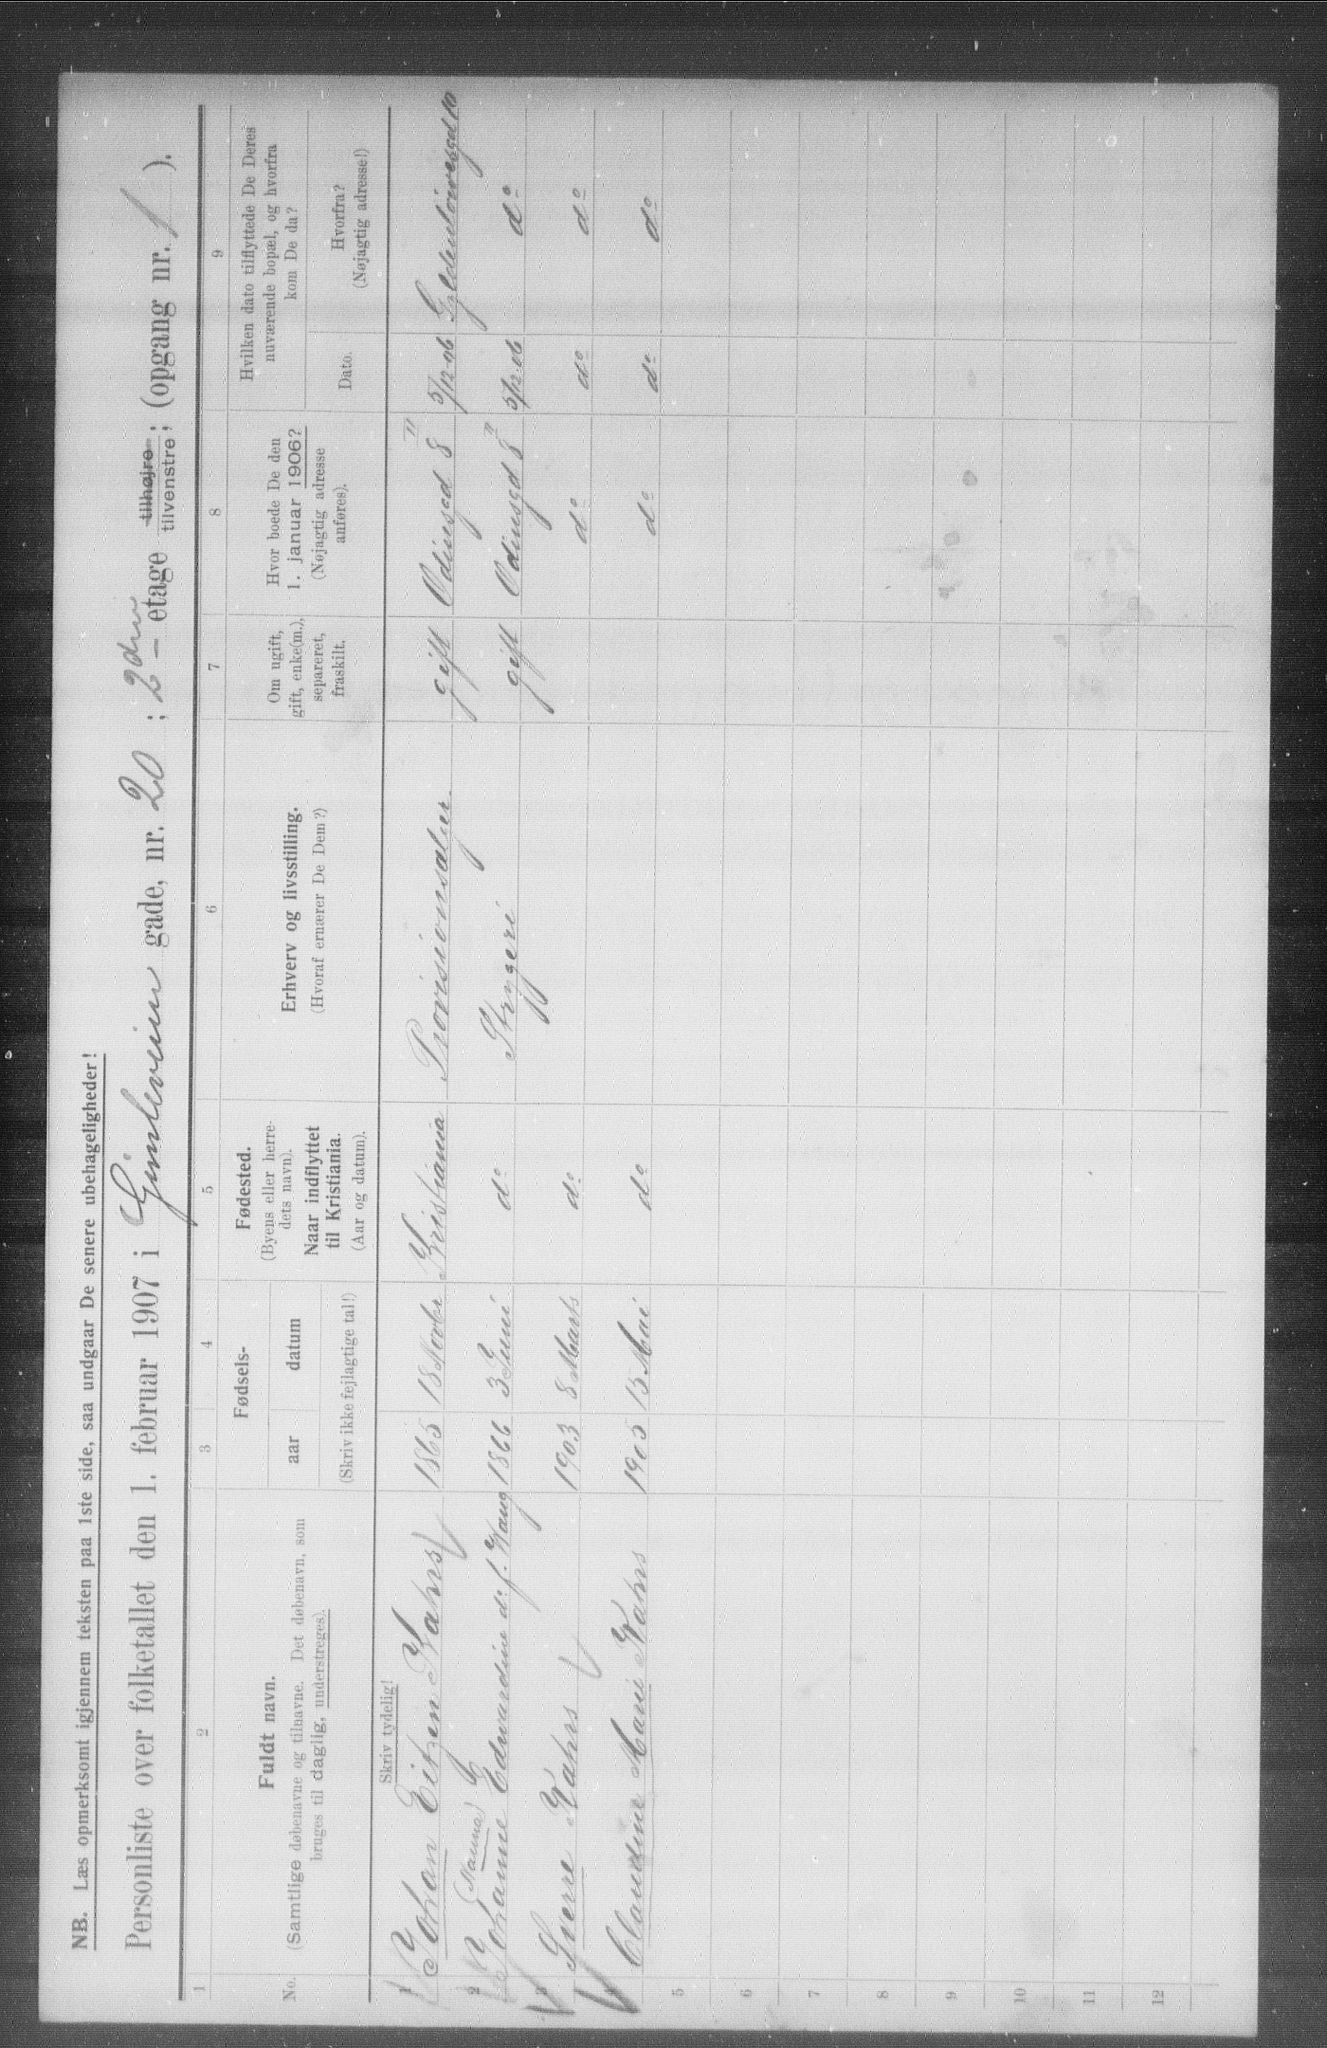 NB. Læs opmerksomt igjennem teksten paa 1ste side, saa undgaar De senere ubehageligheder!
Personliste over folketallet den 1. februar 1907 i Gimleveien gade, nr. 20 ; 2den – etage tilhøjre tilvenstre ; (opgang nr. 1 ).
1 2 3 4 5 6 7 8 9
No.
Fuldt navn.
(Samtlige døbenavne og tilnavne. Det døbenavn, som
bruges til daglig, understreges).
Fødsels-
aar datum
(Skriv ikke fejlagtige tal!)
Fødested.
(Byens eller herre-
dets navn).
Naar indflyttet
til Kristiania.
(Aar og datum).
Erhverv og livsstilling.
(Hvoraf ernærer De Dem?)
Om ugift,
gift, enke(m.),
separeret,
fraskilt.
Hvor boede De den
1. januar 1906?
(Nøjagtig adresse
anføres).
Hvilken dato tilflyttede De Deres
nuværende bopæl, og hvorfra
kom De da?
Dato.
Hvorfra?
(Nøjagtig adresse!)
Skriv tydelig!
1 Johan Eitzen Kahrs 1865 18 Novbr Kristiania Provisionsalgier. gift Odinsgd 8 II 5/12 06 Gyldenløvesgd 10
(Nanna)
2 Johanne Edvardine do f. Haug 1866 3 Juni do Strygeri gift Odinsgd 8 II 5/12 06 do
3 Sverre Kahrs 1903 8 Marts do do do do
4 Claudine Marie Kahrs 1905 13 Mai do do do do
5
6
7
8
9
10
11
12